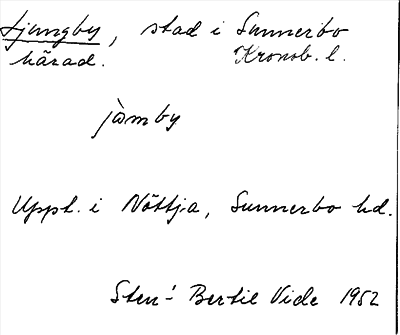 Ljungby, stad i Sunnerbo
härad. Kronob. l.
jàmby
Uppt. i Nöttja, Sunnerbo hd.
Sten-Bertil Vide 1952